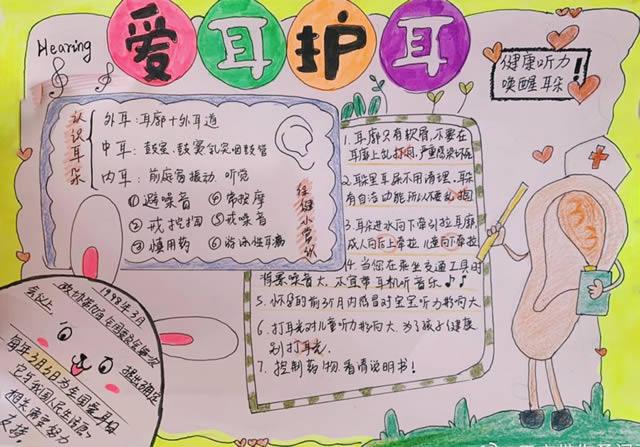 Hearing
爱耳护耳
健康听力
唤醒耳朵!
认识耳朵
外耳:耳廓+外耳道
中耳:鼓室、鼓窦、乳突、咽鼓管
内耳:前庭窗振动、听觉
保健小常识
①避噪音 ④常按摩
②戒挖掏 ⑤戒噪音
③慎用药 ⑥
1.耳廓只有软骨,不要在
耳廓上乱打洞,严重感染
2.耳朵里耳屎不用清理、耳朵
有自洁功能所以不要乱掏
3.耳朵进水向下牵引拉耳廓
成人向后上牵拉,儿童向下牵拉
4.当您在乘坐交通工具时
背景噪音大,不宜带耳机听音乐
5.怀孕的前3个月内感冒对宝宝听力影响大
6.打耳光对儿童听力影响大,为了孩子健康
别打耳光
7.控制药物,看清说明书!
1998年3月
政协第九届全国委员会第一次
会议上,
提出确定
每年3月3日为全国爱耳日